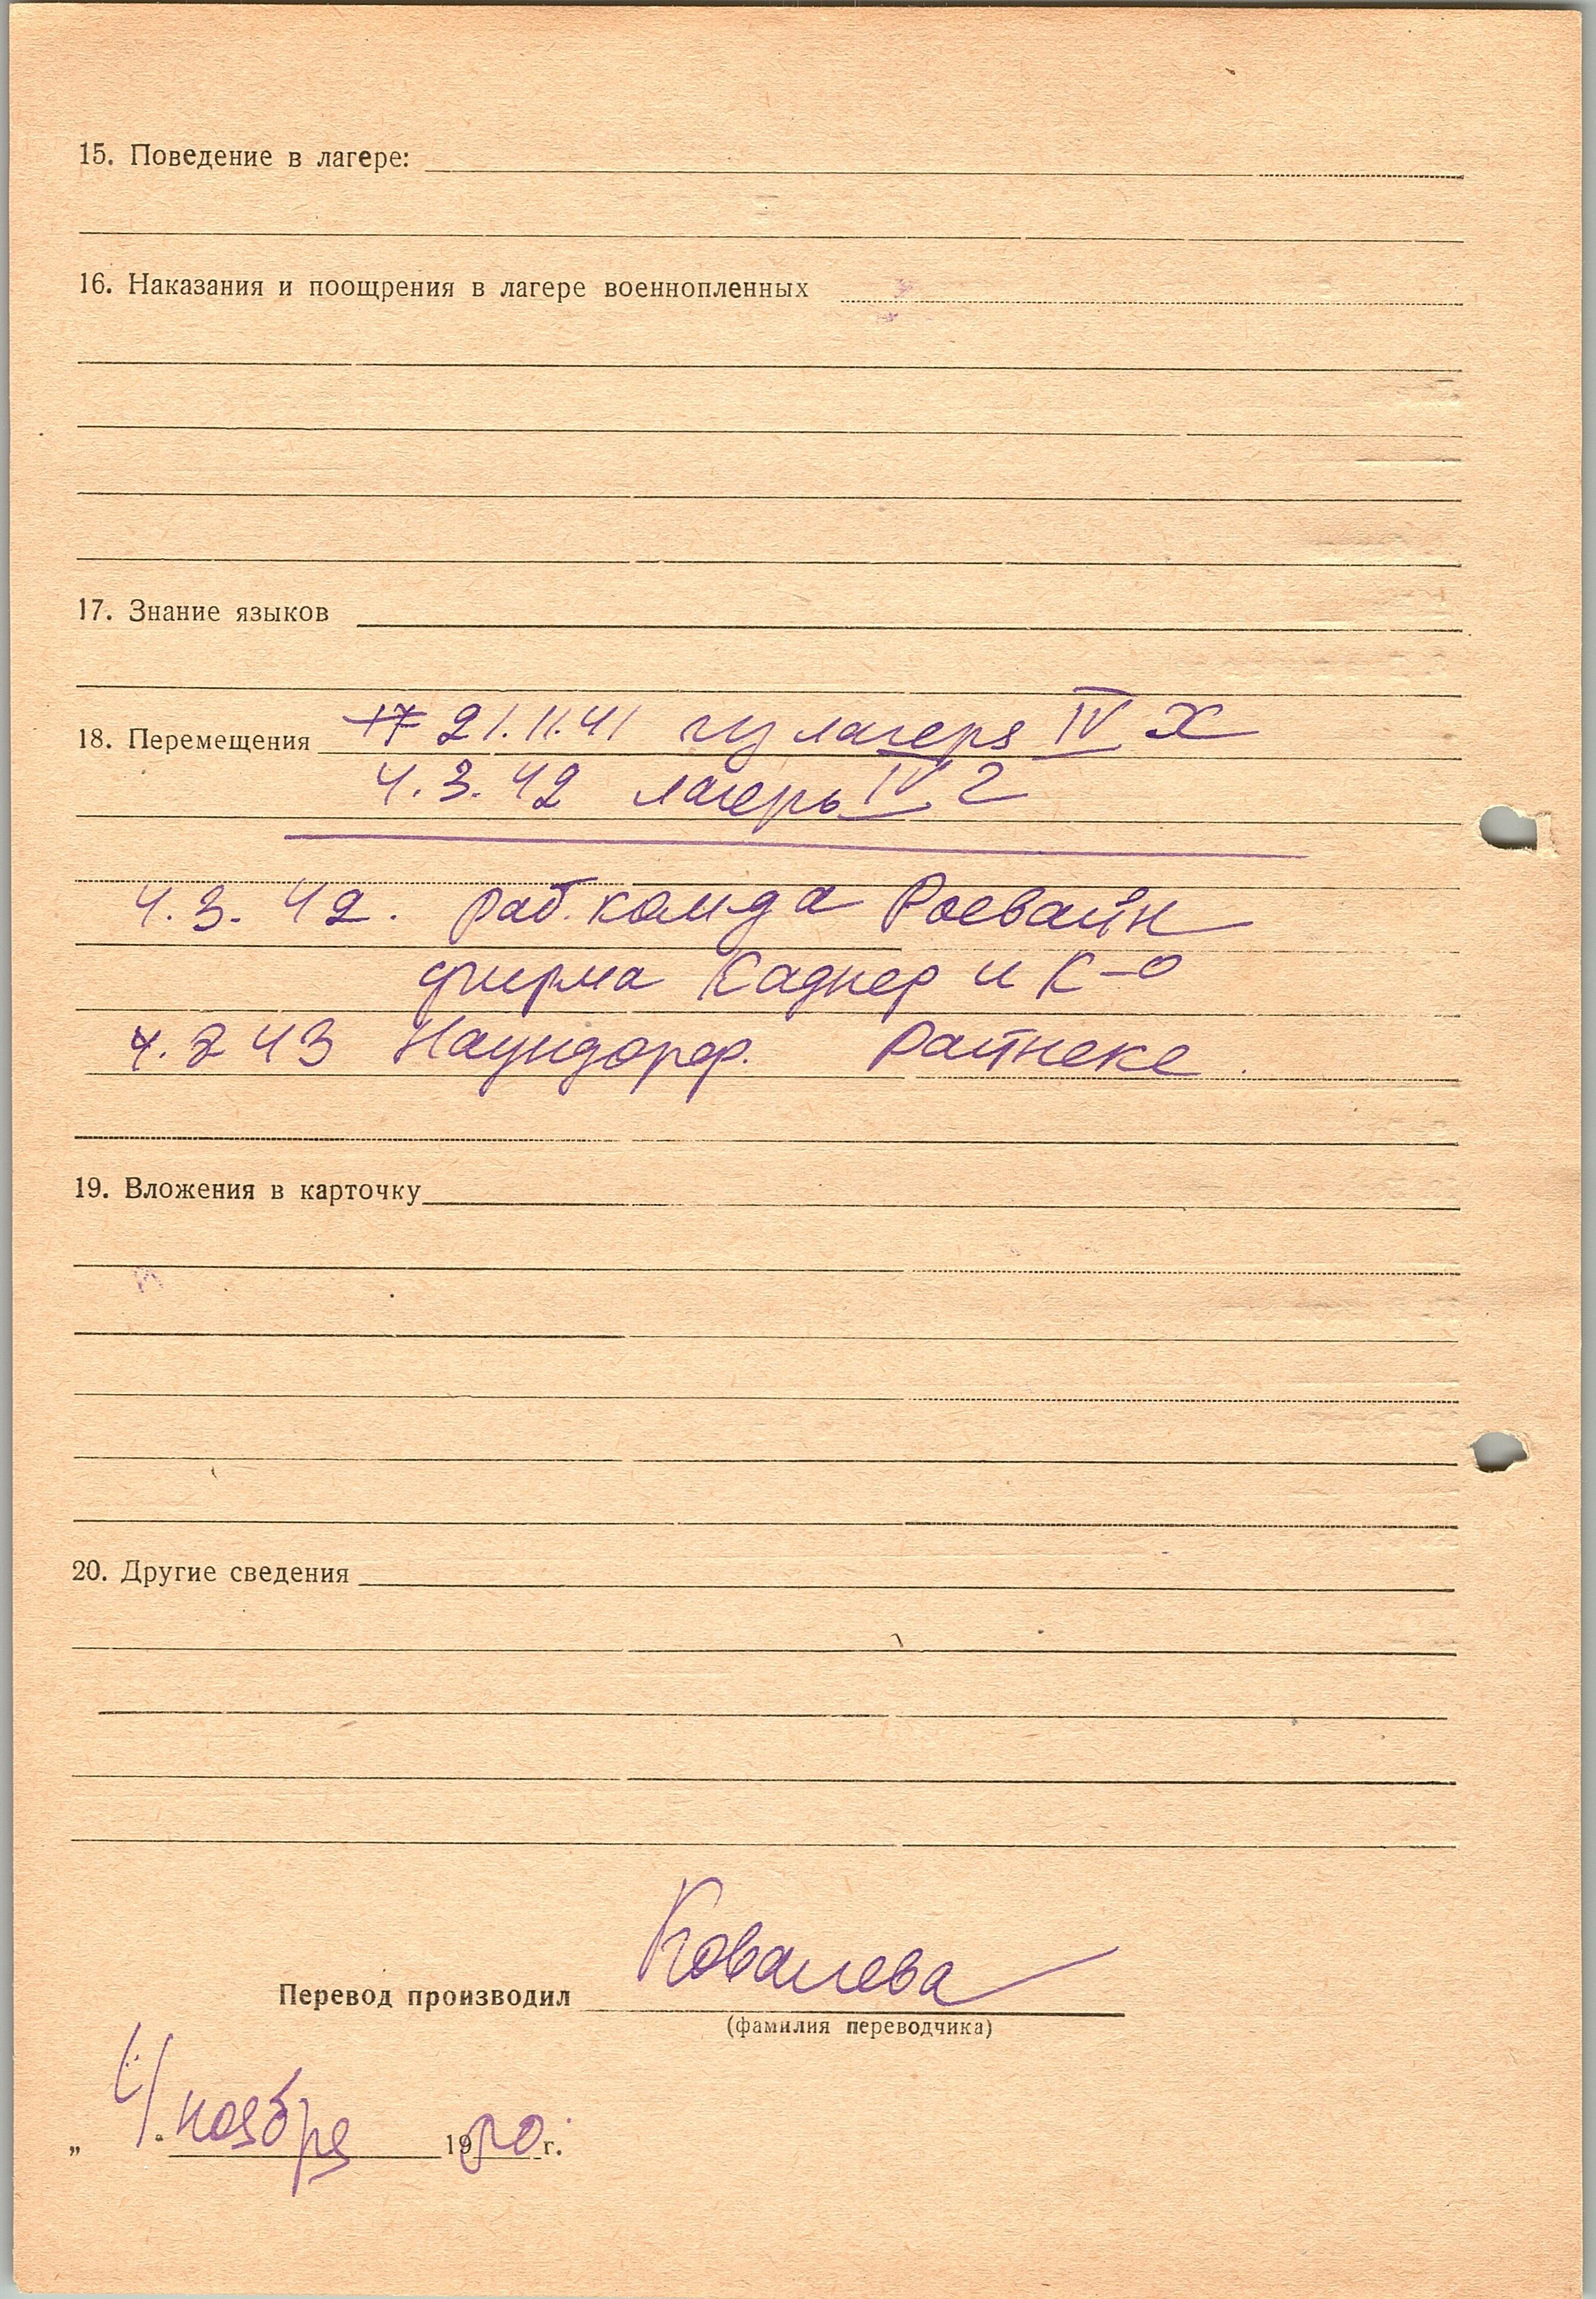 15. Поведение в лагере:
16. Наказания и поощрения в лагере военнопленных
17. Знание языков
18. Перемещения 17 21.11.41 из лагеря IV Х
4.3.42 лагерь IV Г
4.3.42. раб. комда Росвайн
фирма Каднер и К-о
4.2 43 Наундорф. Райнеке.
19. Вложения в карточку
20. Другие сведения
Перевод производил Ковалева
(фамилия переводчика)
„ 4 " ноября 1950 г.